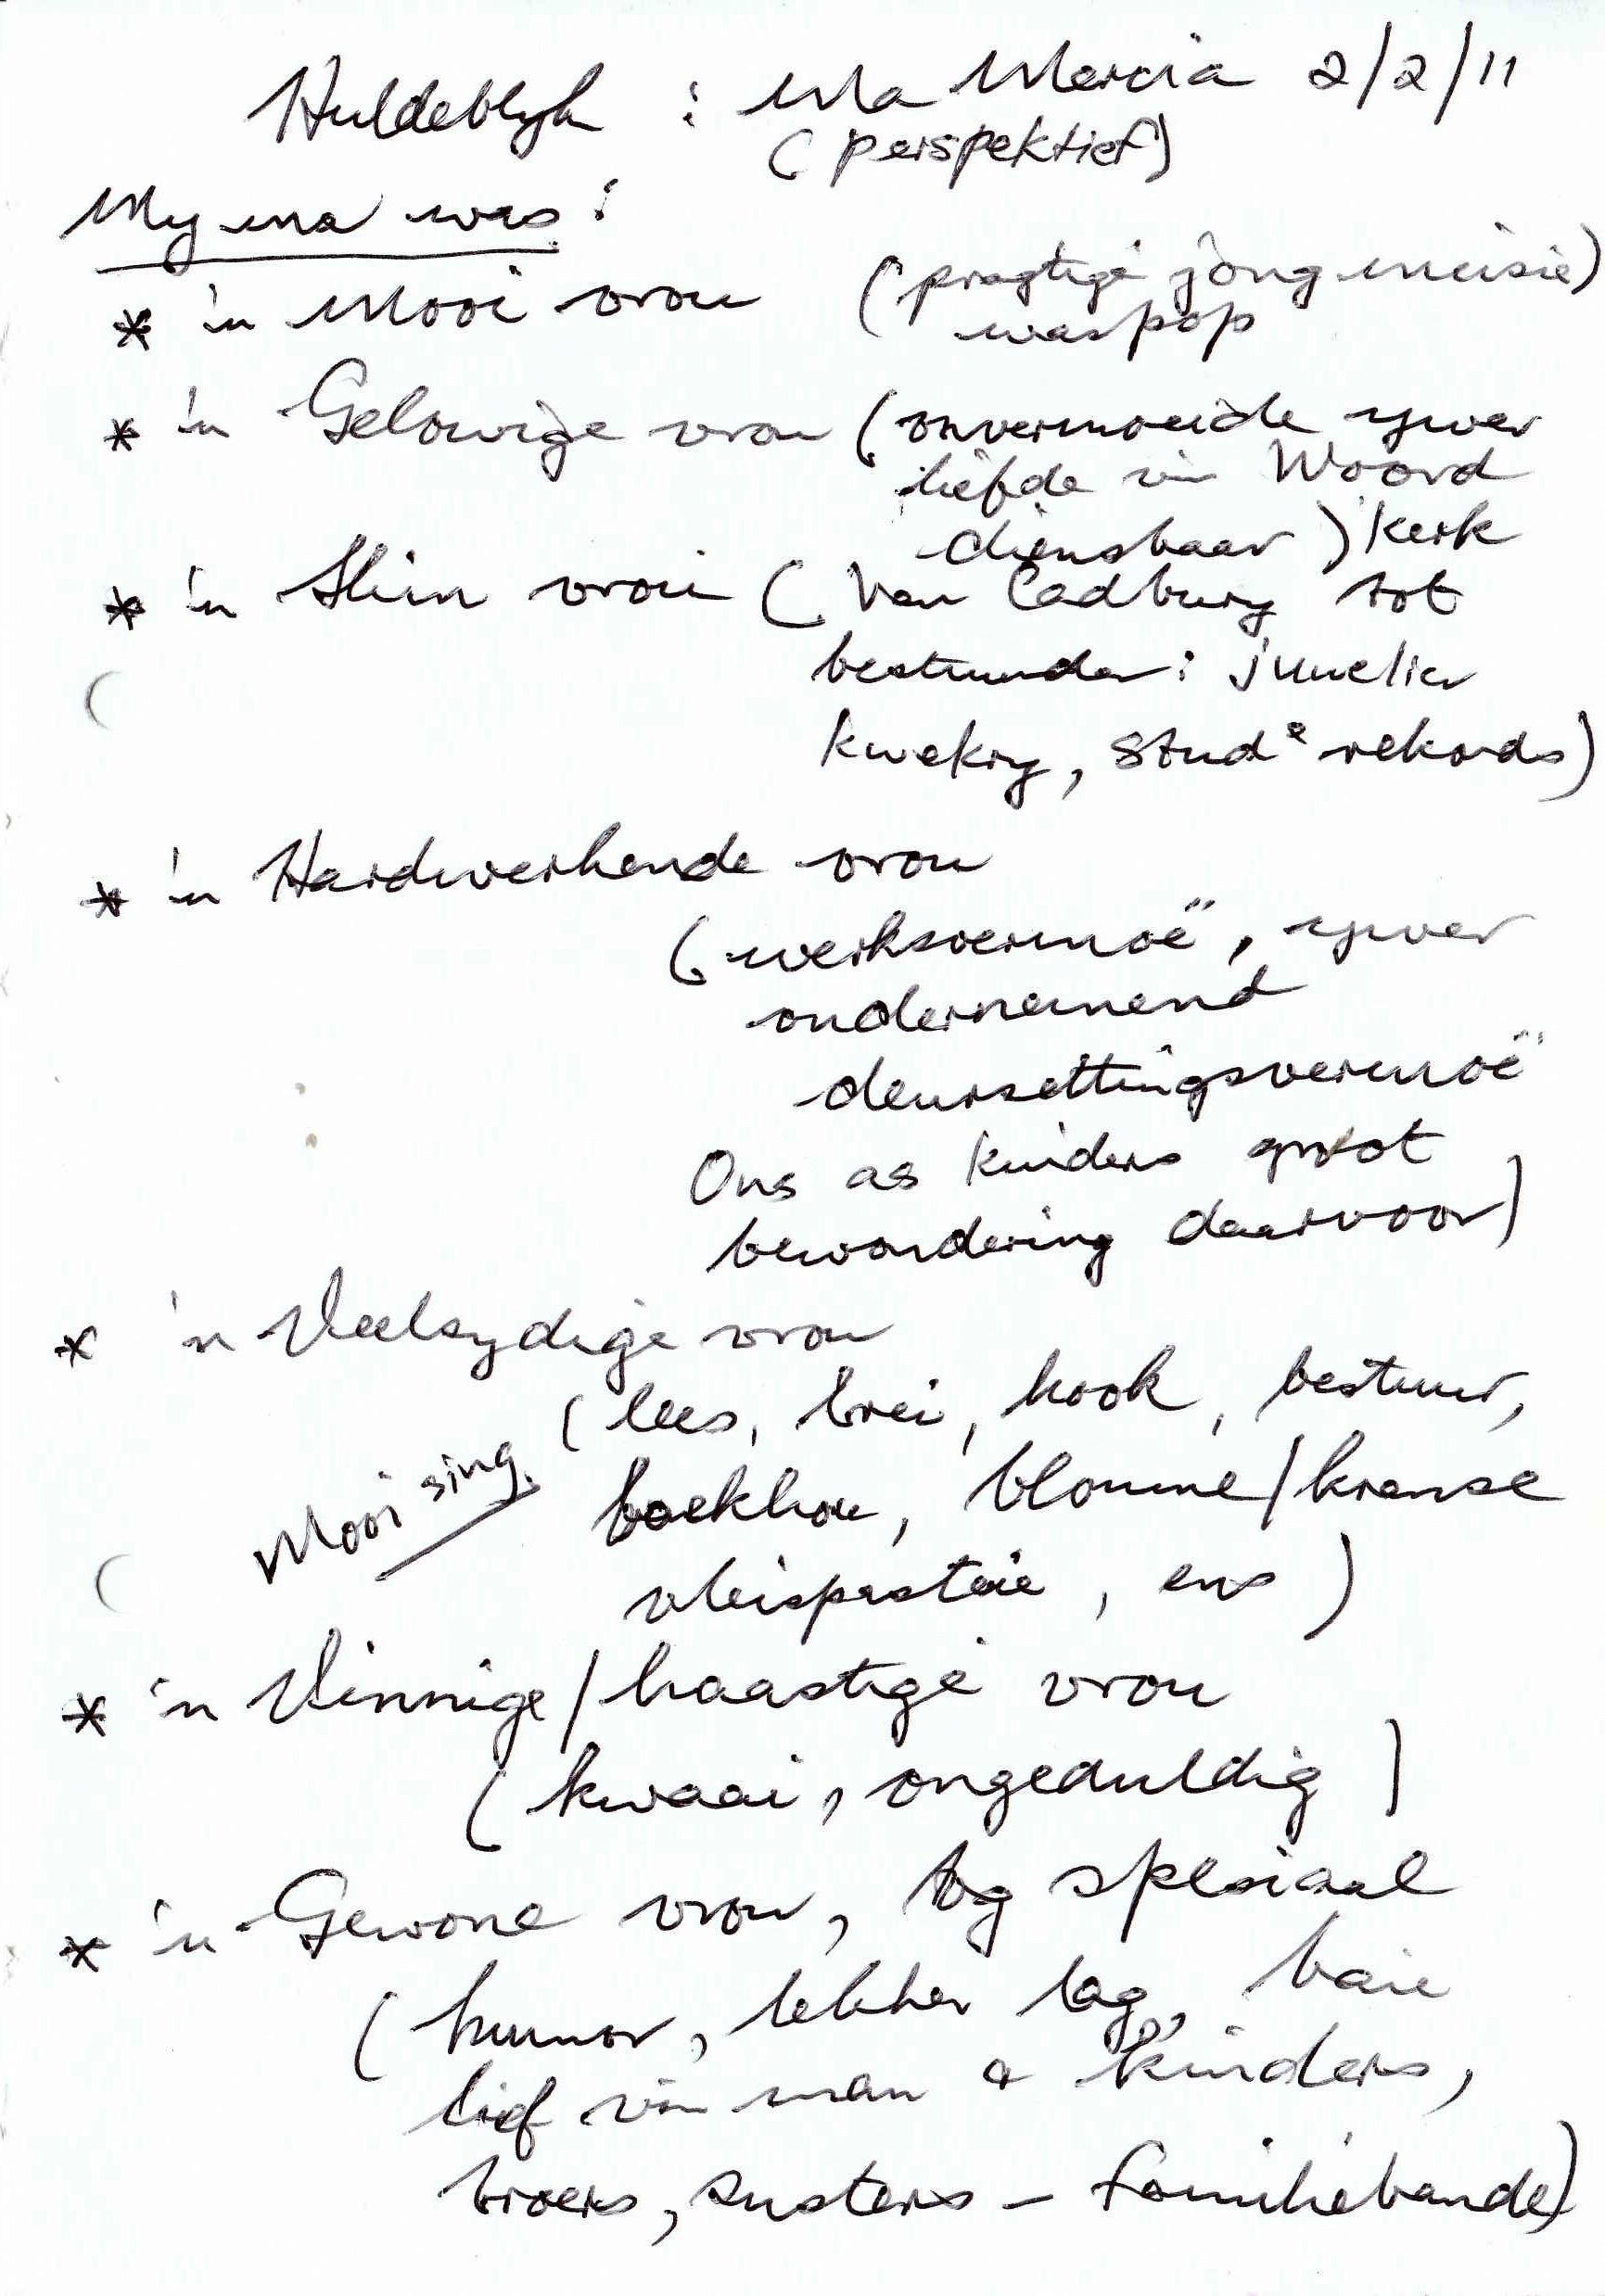 Huldeblyk : Ma Mercia 2/2/11
(perspektief)
My ma was:
* 'n Mooi vrou (pragtige jong meisie)
waspop
* 'n Gelowige vrou (onvermoeide ywer
liefde vir Woord
diensbaar) kerk
* 'n Slim vrou (Van Cadbury tot
bestuurder: juwelier
kwekery, stude rekords)
* 'n Hardwerkende vrou
(werksvermoë, ywer
ondernemend
deursettingsvermoë
Ons as kinders groot
bewondering daarvoor)
* 'n Veelsydige vrou
(lees, brei, kook, bestuur,
Mooi sing
boekhou, blomme/kranse
vleispasteie, ens)
* 'n Vinnige/haastige vrou
(kwaai, ongeduldig)
* 'n Gewone vrou, tog spesiaal
(humor, lekker lag, baie
lief vir man & kinders,
broers, susters - familiebande)